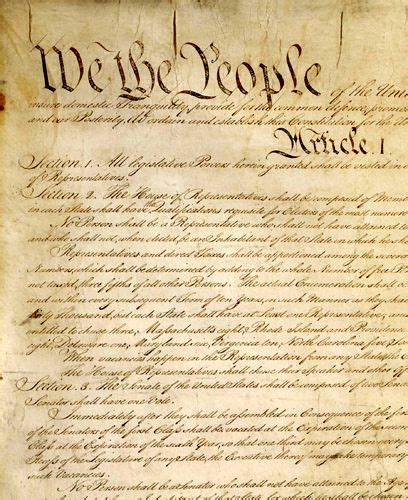 We the People of the Unit
insure domestic Tranquility, provide for the common defence, promo
and our Posterity, do ordain and establish this Constitution for the Un
Article. I.
Section. 1. All legislative Powers herein granted shall be vested in a
of Representatives.
Section. 2. The House of Representatives shall be composed of Mem
in each State shall have Qualifications requisite for Electors of the most numero
No Person shall be a Representative who shall not have attained to
and who shall not, when elected, be an Inhabitant of that State in which he sha
Representatives and direct Taxes shall be apportioned among the severa
Numbers, which shall be determined by adding to the whole Number of free P
not taxed, three fifths of all other Persons. The actual Enumeration shall b
and within every subsequent Term of ten Years, in such Manner as they sha
thirty Thousand, but each State shall have at Least one Representative; and
entitled to chuse three, Massachusetts eight, Rhode Island and Providence
eight, Delaware one, Maryland six, Virginia ten, North Carolina five, So
When vacancies happen in the Representation from any State, the E
The House of Representatives shall chuse their Speaker and other Of
Section. 3. The Senate of the United States shall be composed of two Sena
Senator shall have one Vote.
Immediately after they shall be assembled in Consequence of the fir
of the Senators of the first Class shall be vacated at the Expiration of the
Class at the Expiration of the sixth Year, so that one third may be chosen every
Recess of the Legislature of any State, the Executive thereof may make temporary
such Vacancies.
No Person shall be a Senator who shall not have attained to the Age